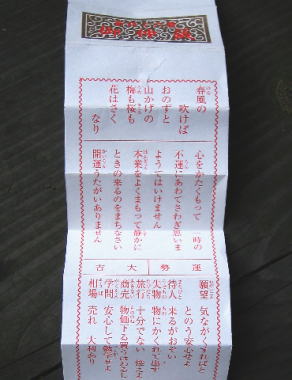 春風の
吹けば
おのずと
山かげの
梅も桜も
花はさく
なり
心をかたくもって 一時の
不運にあわてさわぎ思いま
ようてはいけません
本業をよくまもって静かに
ときの来るのをまちなさい
開運うたがいありません
運勢大吉
願望 気ながくすればと
とのう安心せよ
待人 来るがおそい
失物 物にかくれて出ず
旅行 十分でない
商売
学問 安心して勉学せよ
相場 売れ 大利あり